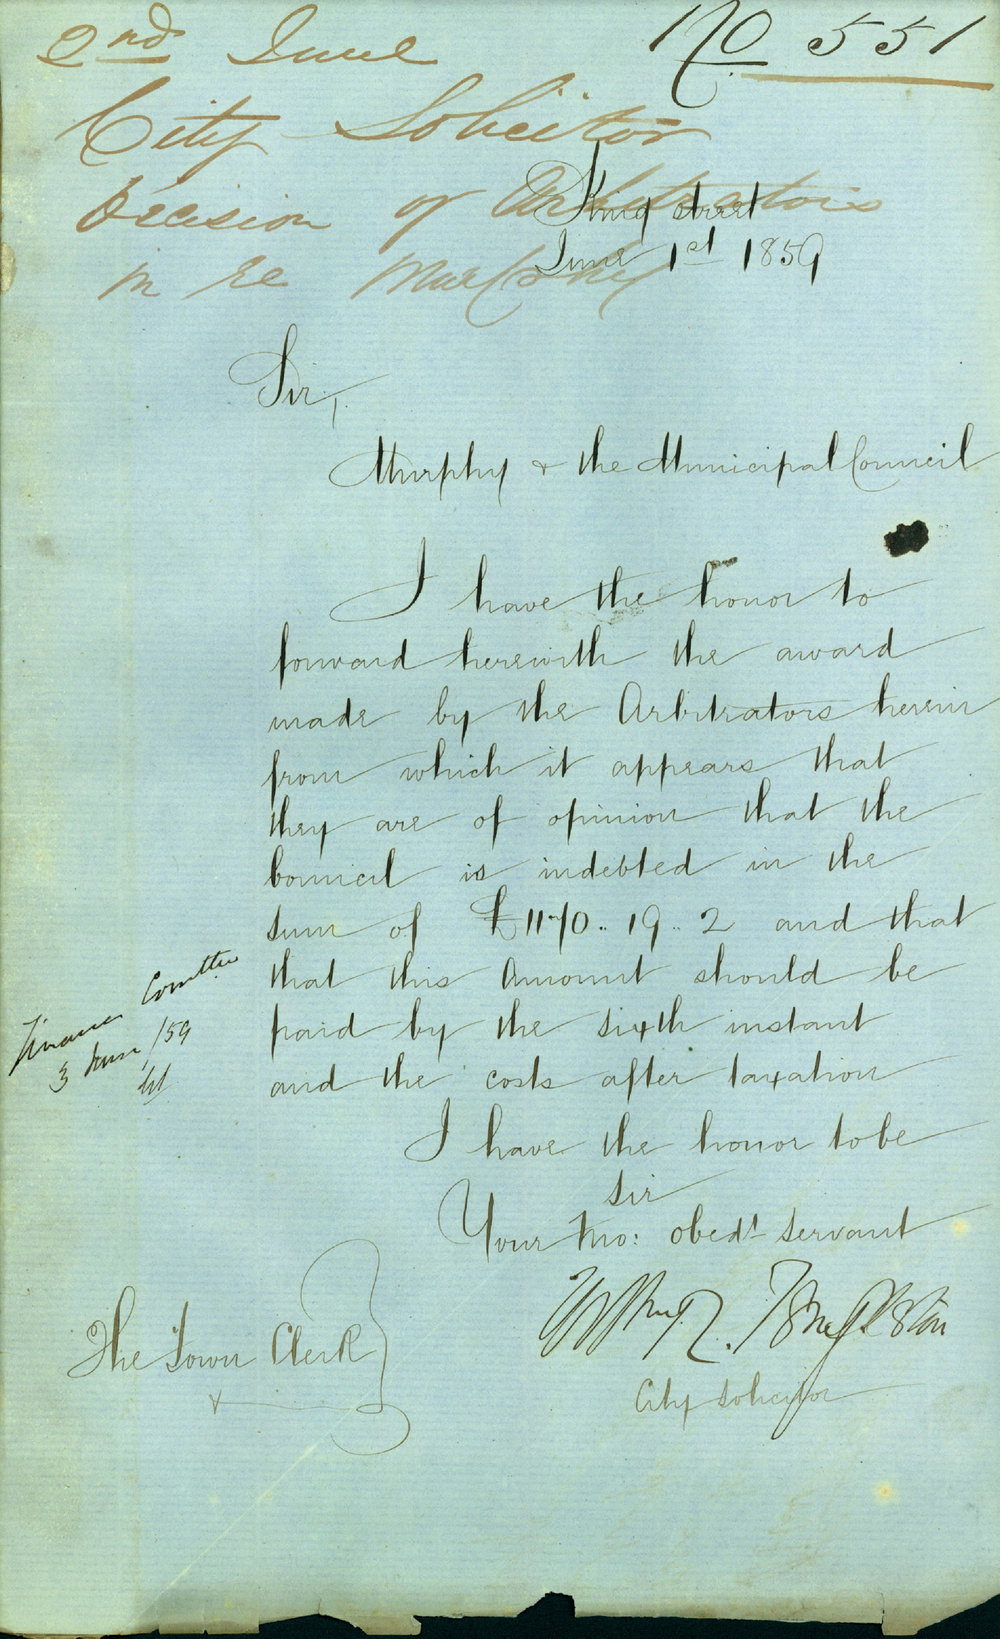 2nd June
No 551
City Solicitor
Decision of Arbitrators
in re Murphy
King street
June 1st 1859
Sir,
Murphy & the Municipal Council
I have the honor to
forward herewith the award
made by the Arbitrators herein
from which it appears that
they are of opinion that the
Council is indebted in the
sum of £1170..19..2 and that
that this Amount should be
paid by the sixth instant
and the costs after taxation
I have the honor to be
Sir
Your mo: obedt servant
City Solicitor
The Town Clerk
Finance Comttee
3 June /59